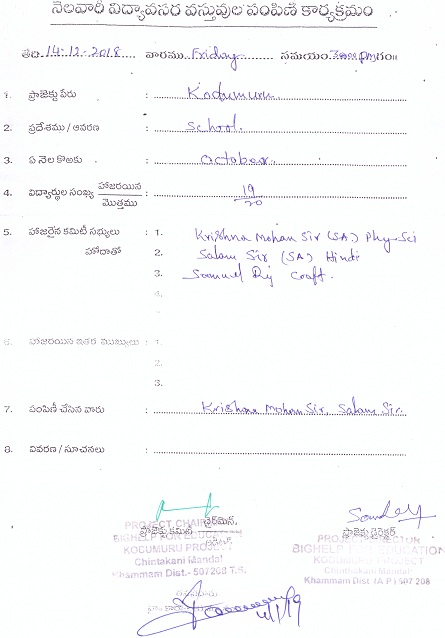 నెలవారీ విద్యావసర వస్తువుల పంపిణీ కార్యక్రమం
తేది. 14-12-2018 వారము Friday సమయం
1. ప్రాజెక్టు పేరు : Kodumuru
2. ప్రదేశము / ఆవరణ : School.
3. ఏ నెల కొఱకు : October
4. విద్యార్థుల సంఖ్య హాజరయిన / మొత్తము : 19 / 20
5. హాజరైన కమిటీ సభ్యులు : 1. Krishna Mohan Sir (SA.) Phy-Sci
హోదాతో 2. Salam Sir (SA) Hindi
3. Samuel Raj Craft.
4.
6. హాజరయిన ఇతర ముఖ్యులు : 1.
2.
3.
7. పంపిణీ చేసిన వారు : Krishna Mohan Sir, Salam Sir.
8. వివరణ / సూచనలు :
ప్రాజెక్టు కమిటీ ఛైర్మెన్,
ప్రాజెక్టు డైరెక్టర్
PROJECT CHAIR
BIGHELP FOR EDUCATION
KODUMURU PROJECT
Chintakani Mandal
Khammam Dist.- 507208 T.S.
PROJECT DIRECTOR
BIGHELP FOR EDUCATION
KODUMURU PROJECT
Chintakani Mandal
Khammam Dist. (A.P.) 507 208
4/1/19